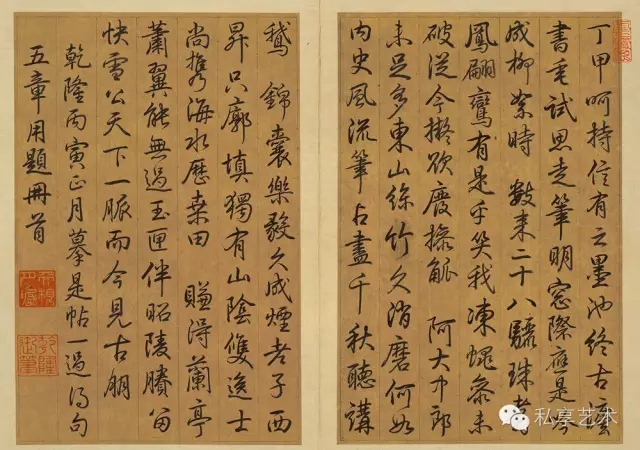 丁甲呵持信有之墨池终古蛰
書乖試思走筆明窓際應是吟
成柳絮時 数来二十八驪珠耆
鳳翩鸞有是乎笑我凍蠅参未
破従今擬欲廢操觚 阿大中郎
未足多東山絲竹久消磨何如
内史風流筆占盡千秋聽講
鵝 錦囊樂毅久成煙老子西
昇只廓填獨有山陰雙逸士
尚携海水歴桑田 賺得蘭亭
蕭翼能無過玉匣伴昭陵賸留
快雪公天下一脈而今見古朋
乾隆丙寅正月摹是帖一過得句
五章用題冊首
私享艺术